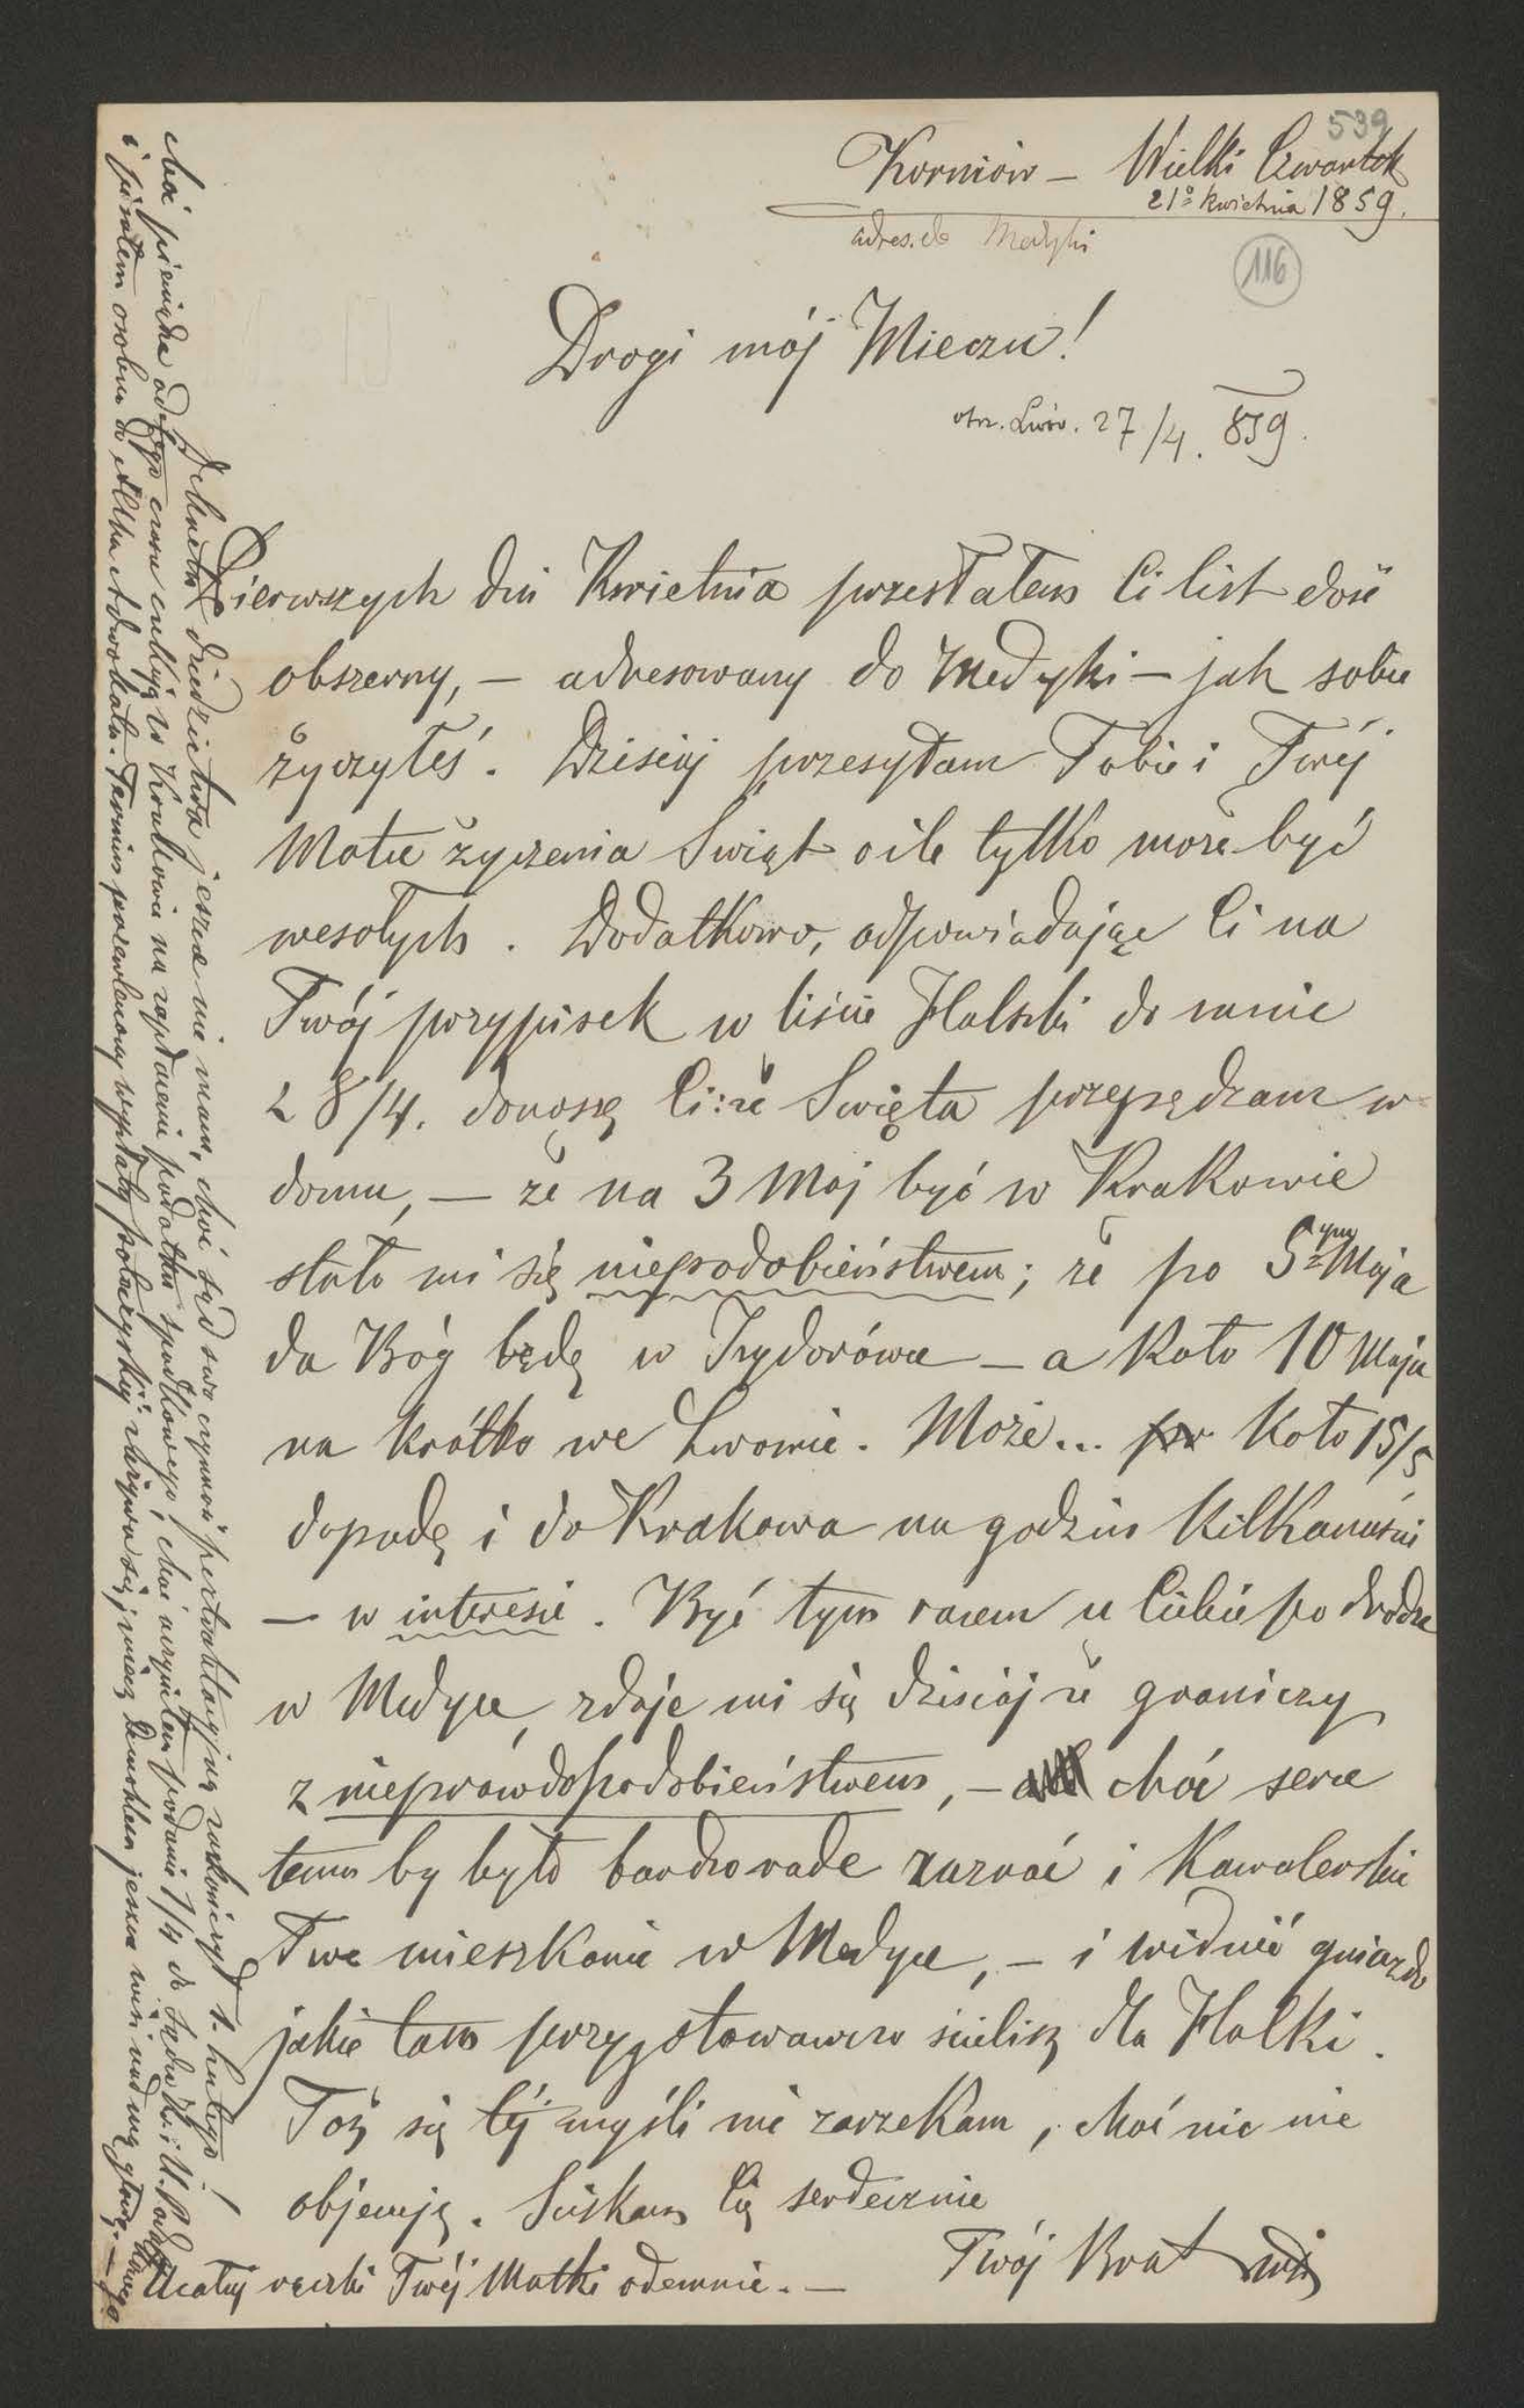 539
Korniów – Wielki Czwartek
21º Kwietnia 1859.
adres. do Medyki
116
Drogi mój Mieczu!
otrz. Lwów. 27/4. 859.
Pierwszych dni Kwietnia przesłałem Ci list dość
obszerny, – adresowany do Medyki – jak sobie
życzyłeś. Dzisiaj przesyłam Tobie i Twéj
Matce życzenia Świąt o ile tylko może być
wesołych. Dodatkowo, odpowiadając Ci na
Twój przypisek w liście Halszki do mnie
z 8/4. donoszę Ci: że Święta przepędzam w
domu, – że na 3 Maj być w Krakowie
stało mi się niepodobieństwem; że po 5tym Maja
da Bóg będę w Izydorówce – a koło 10 Maja
na krótko we Lwowie. Może... koło 15/5
dopadę i do Krakowa na godzin kilkanaście
– w interesie. Być tym razem u Ciebie po drodze
w Medyce, zdaje mi się dzisiaj że graniczy
z nieprawdopodobieństwem, – choć serce
temu by było bardzo rade zaznać i Kawalerskie
Twe mieszkanie w Medyce, – i widzieć gniazdo
jakie tam przygotowawczo ścielisz dla Halki.
Toż się téj myśli nie zarzekam, choć nic nie
objecuję. Ściskam Cię serdecznie
Twój Brat
Ucałuj rączki Twéj Matki odemnie. –
Dekretu dziedzictwa jeszcze nie mam, choć sąd swe czynność pertraktacyjną zakończył 1. lutego!
choć pieniądze od tego czasu czekają w Krakowie na zapłacenie podatku spadkowego, choć uczyniłem podanie 1/4 do Sądu K. i
i pisałem osobno do Adwokata. Termin pozewlenony wypłaty jeszcze wisi nad mą głową. –